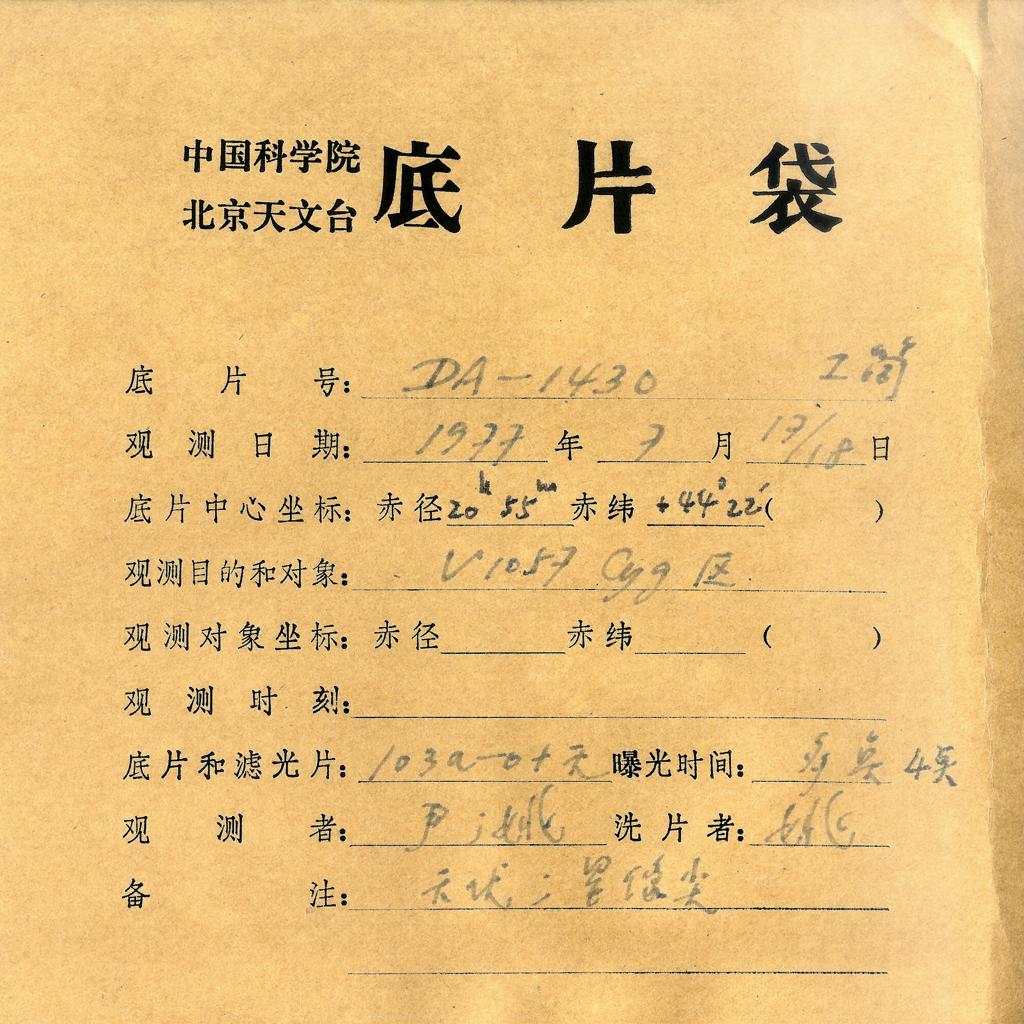 中国科学院
北京天文台
底片袋
底片号: DA-1430
观测日期: 1977 年 7 月 17/18 日
底片中心坐标: 赤径 20h 55m 赤纬 +44°22′( )
观测目的和对象: V1057 Cyg 区
观测对象坐标: 赤径 赤纬 ( )
观测时刻:
底片和滤光片: 103a-0+无 曝光时间: 多点 4点
观测者: 尹;姚 洗片者: 姚
备注: 星像尖